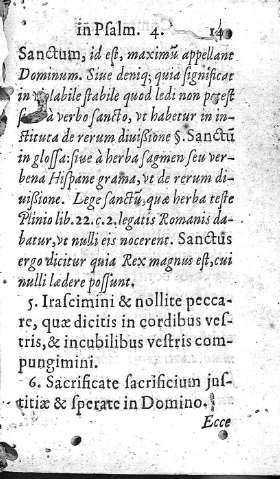 in Psalm. 4. 14
Sanctum, id est, maximũ appellant
Dominum. Siue deniq; quia significat
in stabile quod ledi non potest
à verbo sancto, vt habetur in in-
stituta de rerum diuißione §. Sanctũ
in glossa: siue à herba sagmen seu ver-
bena Hispane grama, vt de rerum di-
uißione. Lege sanctũ, quæ herba teste
Plinio lib. 22. c. 2. legatis Romanis da-
batur, vt nulli eis nocerent. Sanctus
ergo dicitur quia Rex magnus est, cui
nulli lædere possunt.
5. Irascimini & nollite pecca-
re, quæ dicitis in cordibus ves-
tris, & incubilibus vestris com-
pungimini.
6. Sacrificate sacrificium jus-
titiæ & sperate in Domino.
Ecce